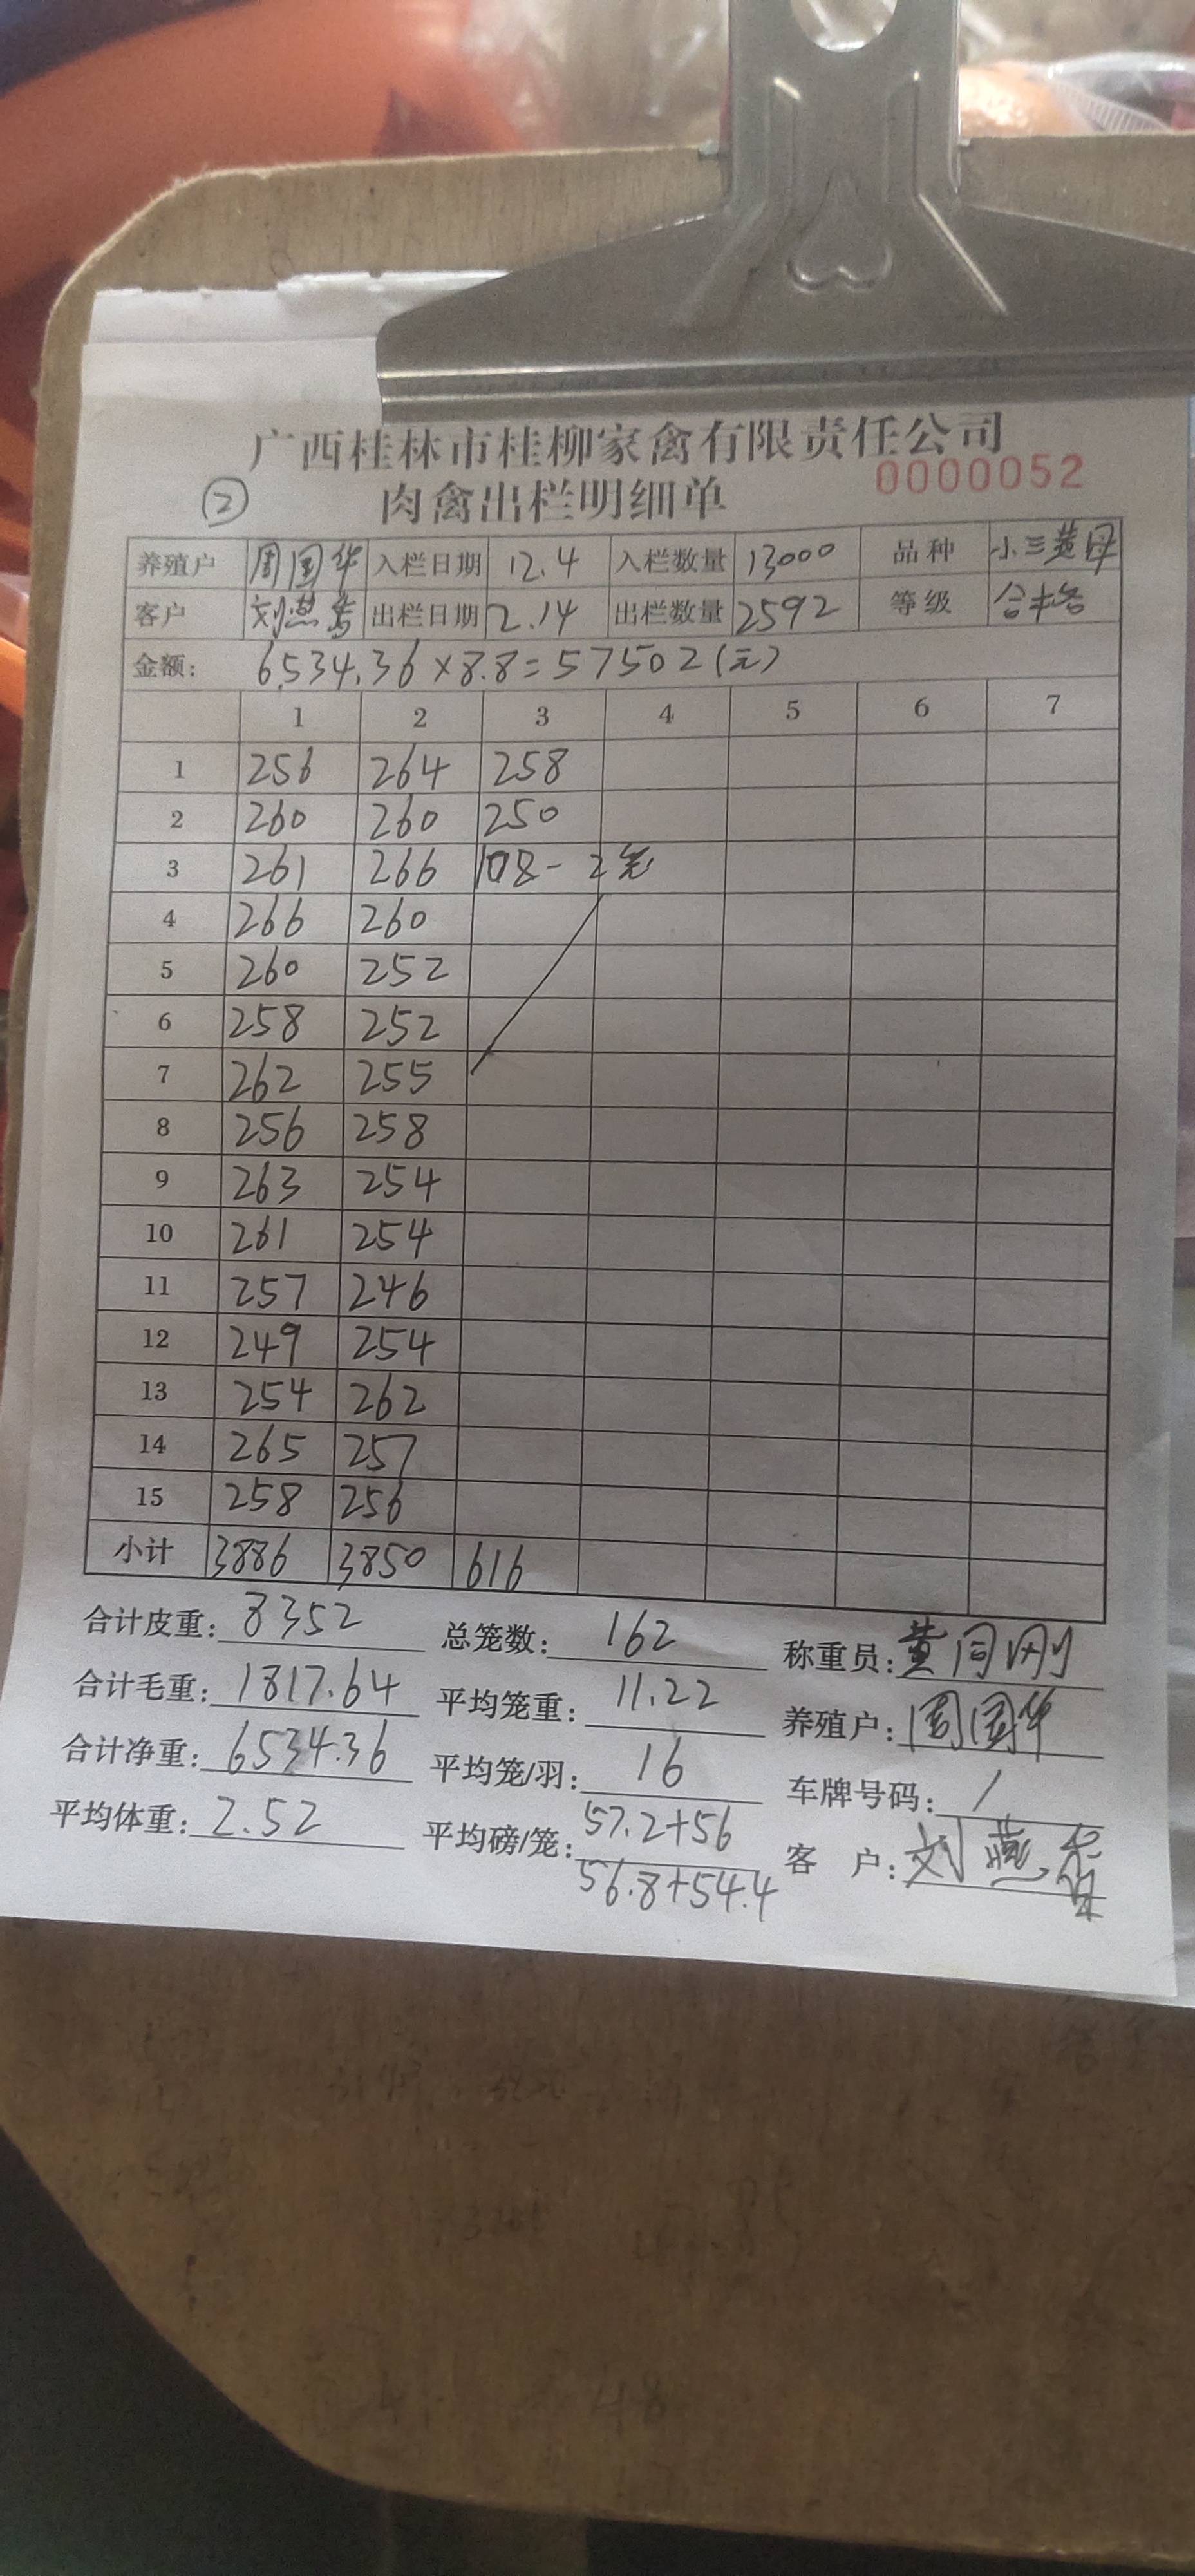 广西桂林市桂柳家禽有限责任公司
② 肉禽出栏明细单 0000052
养殖户 周国华 入栏日期 12.4 入栏数量 13000 品种 小三黄母
客户 刘燕香 出栏日期 2.14 出栏数量 2592 等级 合格
金额: 6534.36×8.8=57502(元)
1 2 3 4 5 6 7
1 256 264 258
2 260 260 250
3 261 266 108-2笼
4 266 260
5 260 252
6 258 252
7 262 255
8 256 258
9 263 254
10 261 254
11 257 246
12 249 254
13 254 262
14 265 257
15 258 256
小计 3886 3850 616
合计皮重: 8352 总笼数: 162 称重员: 黄同刚
合计毛重: 1817.64 平均笼重: 11.22 养殖户: 周国华
合计净重: 6534.36 平均笼/羽: 16 车牌号码: /
平均体重: 2.52 平均磅/笼: 57.2+56 客 户: 刘燕香
56.8+54.4